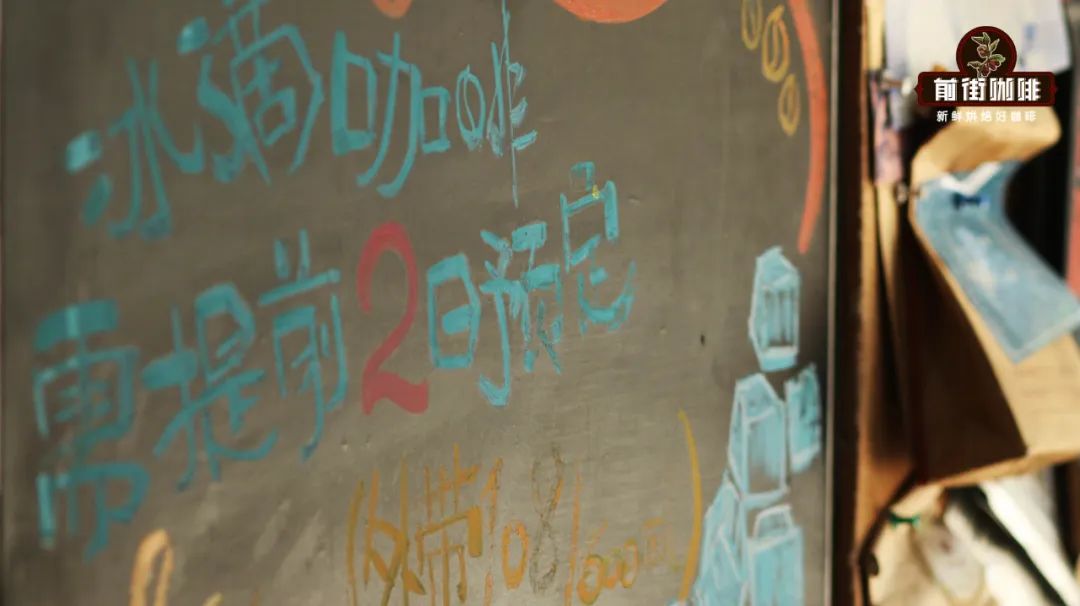 冰滴咖啡
需提前2日预定
(外带108/600
前街咖啡
新鲜烘焙好咖啡